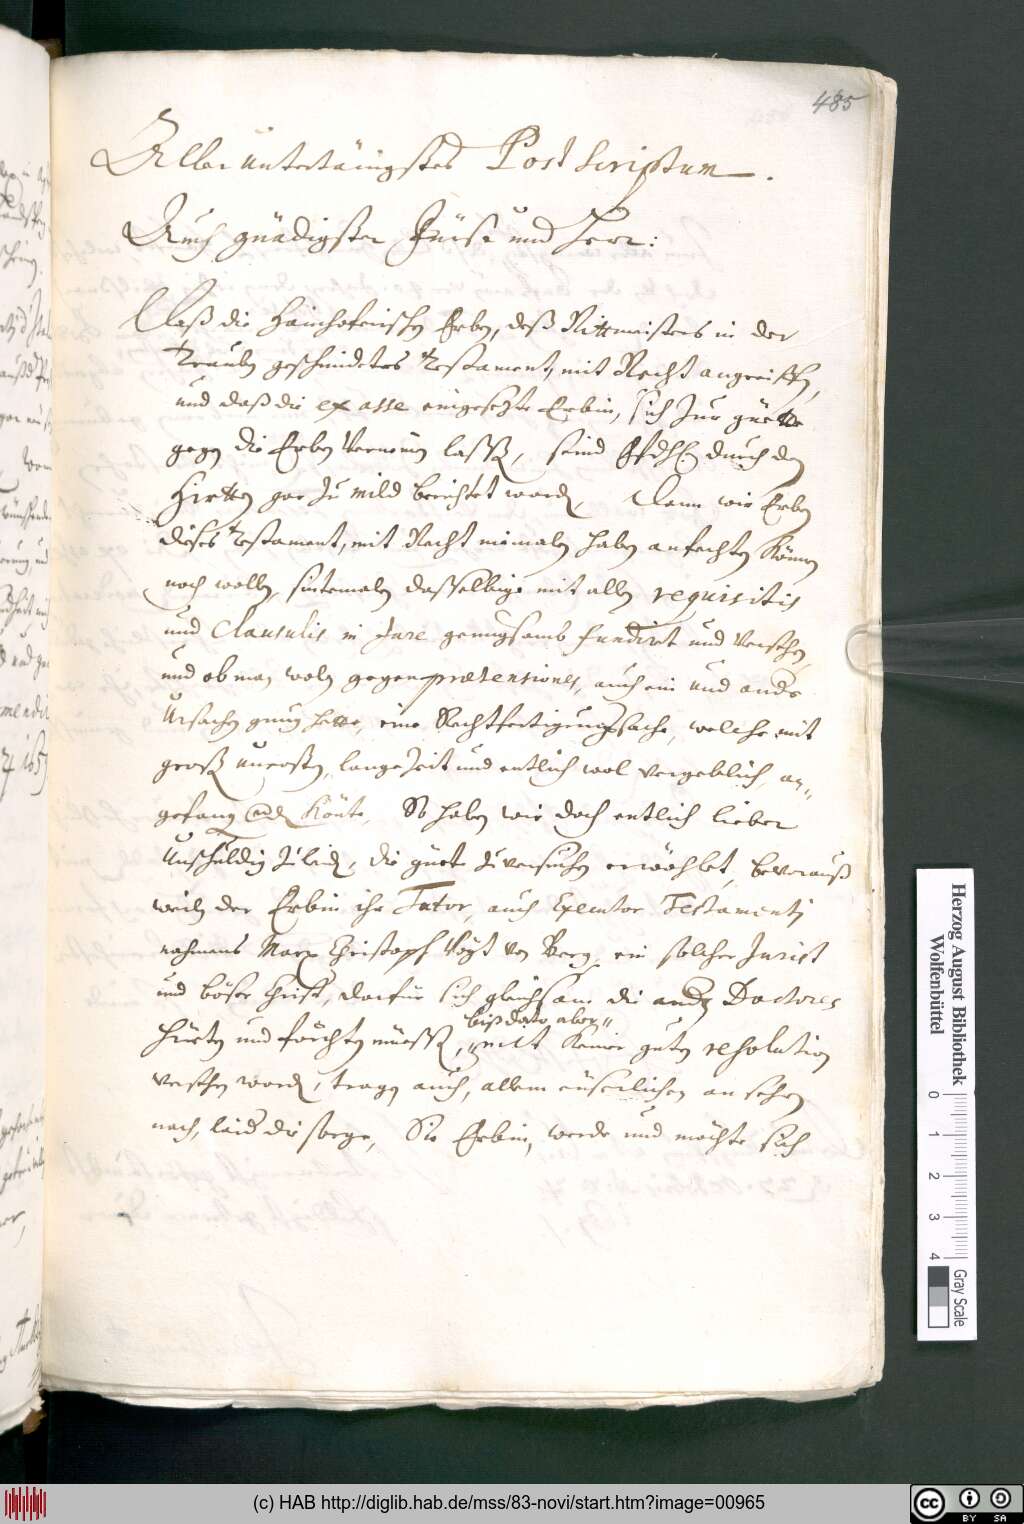 485
Aller untertänigstes Post Scriptum.
Auch gnädigster Fürst und Herr:
Daß die Hainhoferischen Erben, deß Rittmeisters in der
Trauben geschmidetes Testament, mit Recht angreiffen,
und daß die ex asse eingesezte Erbin, sich zur güette
gegen die Erben vernemen lassen, seind durch den
Hirtten gar zu mild berichtet worden, Dann wir Erben
dises Testament, mit Recht niemalen haben anfechten können
noch wollen, sintemalen dasselbige mit allen requisitis
und Clausulis in Jure genugsamb fundirt und versehen,
und ob man woln gegenprætensiones, auch ein und andere
Ursachen genug hette, eine Rechtfertigungssache, welche mit
groß uncosten, lange Zeit und entlich wol vergeblich, an-
gefangen werden könte, So haben wir doch entlich lieber
Unschuldig zu leiden, die güete zuversuchen erwöhlet, bevorauß
weiln der Erbin ihr Tutor, auch Executor Testamenti
nahmens Marx Christoph Vogt von Berg, ein solcher Jurist
und böser Christ, darfür sich gleichsam die andern Doctores
hüeten und förchten müessen,
biß dato aber
mit keiner guten resolution
versehen worden, tragen auch, allem eüserlichen ansehen
nach, laider sorge, Sie Erbin, werde und möchte sich
Herzog August Bibliothek
Wolfenbüttel
0 1 2 3 4
Gray Scale
(c) HAB http://diglib.hab.de/mss/83-novi/start.htm?image=00965
cc BY SA